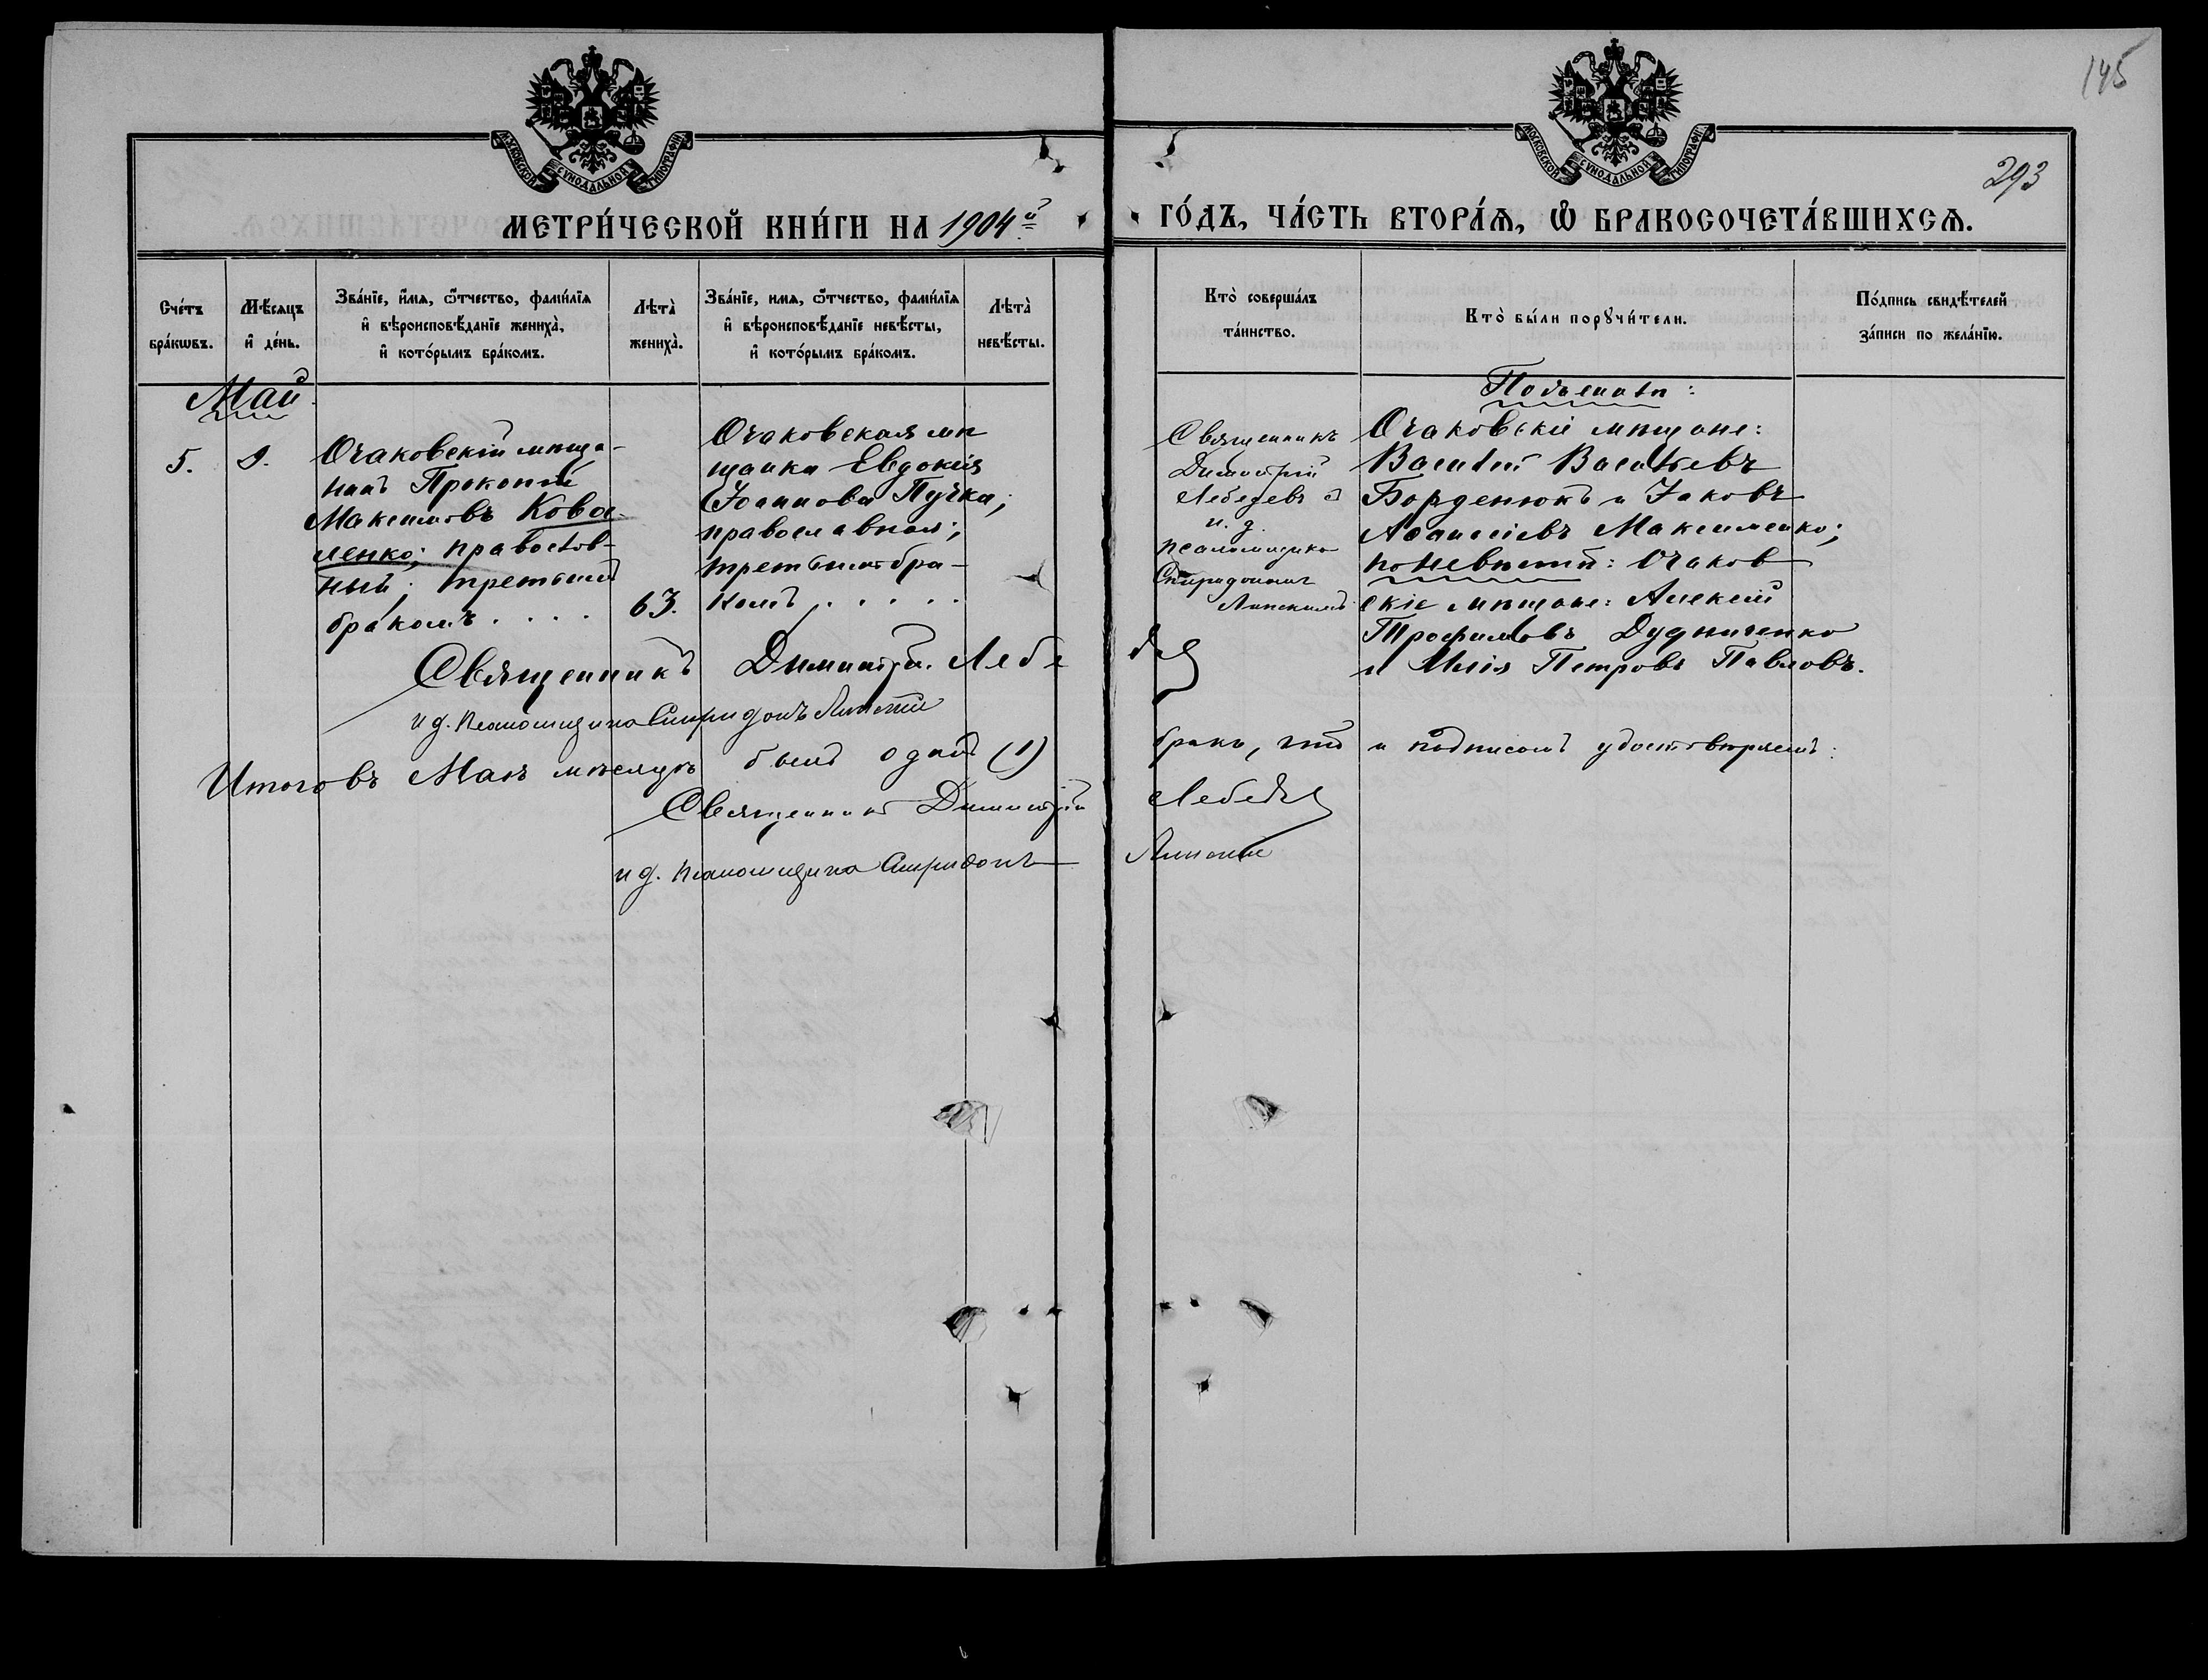 145
293
МОСКОВСКОЙ СѴНОДАЛЬНОЙ ТИПОГРАФІИ
МОСКОВСКОЙ СѴНОДАЛЬНОЙ ТИПОГРАФІИ
МЕТРИ́ЧЕСКОЙ КНИ́ГИ НА 1904й ГО́ДЪ, ЧА́СТЬ ВТОРА́Ѧ, Ѽ БРАКОСОЧЕТА́ВШИХСѦ.
Сче́тъ бра́кѡвъ.
Мѣ́сяцъ и҆ де́нь.
Зва́нїе, и҆́мѧ, ѻ҆́тчество, фами́лїѧ и҆ вѣроисповѣ́данїе жениха̀, и҆ кото́рымъ бра́комъ.
Лѣта̀ жениха̀.
Зва́нїе, имѧ, ѻ҆́тчество, фами́лїѧ и҆ вѣроисповѣ́данїе невѣ́сты, и҆ кото́рымъ бра́комъ.
Лѣта̀ невѣ́сты.
Кто̀ соверша́лъ та́инство.
Кто̀ бы́ли порꙋчи́тели.
По́дпись свидѣ́телей за́писи по жела́нїю.
Май
5.
9.
Очаковскій мѣща-
нинъ Прокопій
Максимовъ Кова-
ленко; православ-
ный; третьимъ
бракомъ . . . .
63.
Очаковская мѣ
щанка Евдокія
Іоаннова Пучка;
православная;
третьимъ бра-
комъ . . . . .
Священникъ
Димитрій
Лебедевъ съ
и. д.
псаломщика
Спиридономъ
Липскимъ
По женихѣ:
Очаковскіе мѣщане:
Василій Васильевъ
Борденюкъ и Іаковъ
Аѳанасіевъ Максименко;
по невѣстѣ: Очаков
скіе мѣщане: Алексій
Трофимовъ Дудниченко
и Илія Петровъ Павловъ.
Священникъ Димитрій Лебедевъ
и д. псаломщика Спиридонъ Липскій
Итого въ Маѣ мѣсяцѣ былъ одинъ (1) бракъ, что и подписомъ удостовѣряемъ:
Священникъ Димитрій Лебедевъ
и д. псаломщика Спиридонъ Липскій